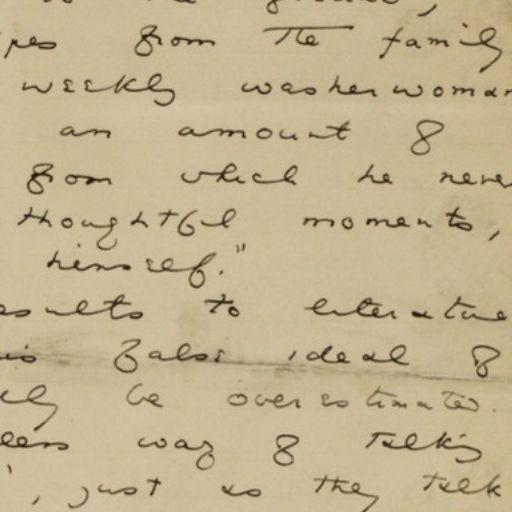 from the family
weekly washerwoman
an amount of
from which he never
thoughtful moments,
himself."
results to literature
is false ideal of
be overestimated.
way of talking
, just as they talk